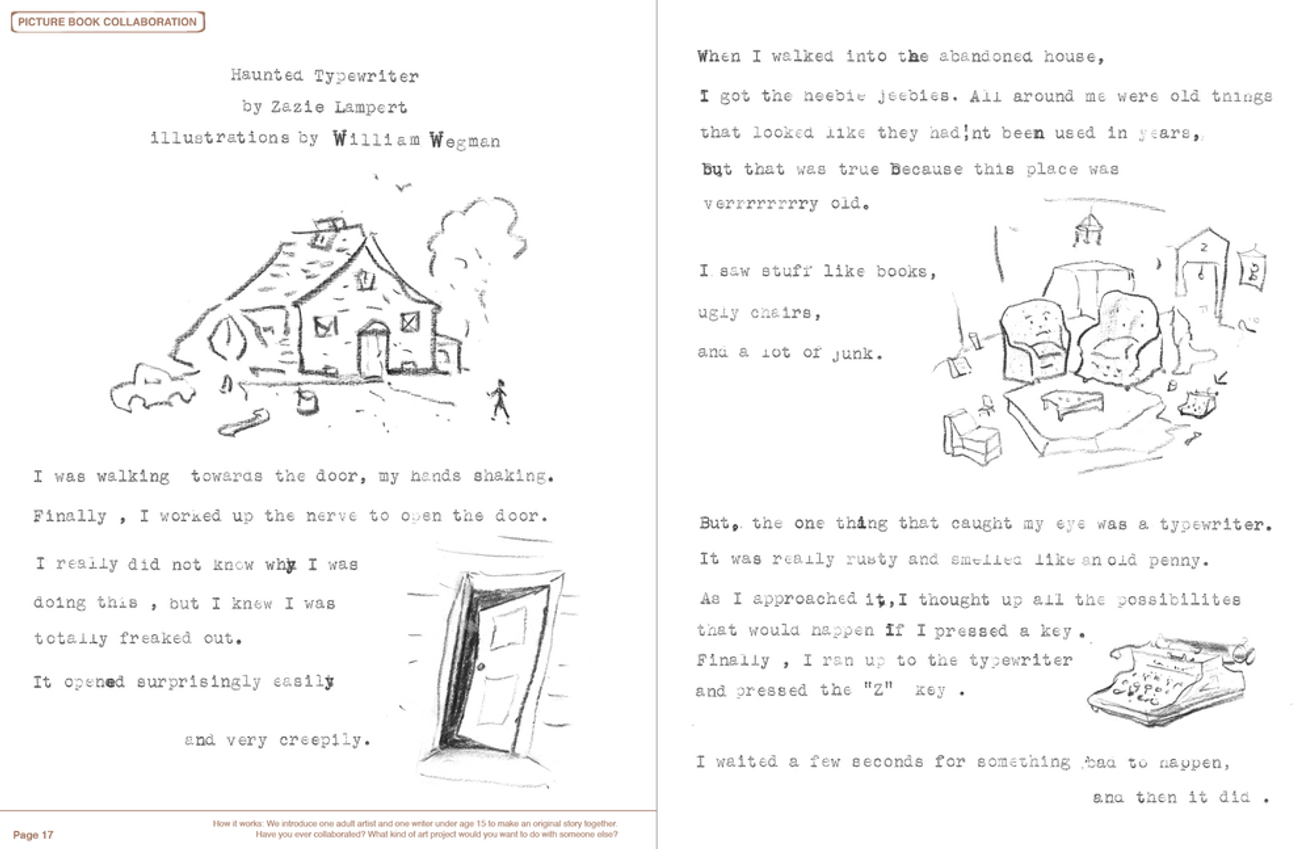 PICTURE BOOK COLLABORATION
Haunted Typewriter
by Zazie Lampert
illustrations by William Wegman
I was walking towards the door, my hands shaking.
Finally , I worked up the nerve to open the door.
I really did not know why I was
doing this , but I knew I was
totally freaked out.
It opened surprisingly easily
and very creepily.
Page 17
How it works: We introduce one adult artist and one writer under age 15 to make an original story together.
Have you ever collaborated? What kind of art project would you want to do with someone else?
When I walked into the abandoned house,
I got the heebie jeebies. All around me were old things
that looked like they had¦nt been used in years,
But that was true Because this place was
verrrrrrrry old.
2
I saw stuff like books,
ugly chairs,
and a lot of junk.
But, the one thing that caught my eye was a typewriter.
It was really rusty and smelled like an old penny.
As I approached it,I thought up all the possibilites
that would happen if I pressed a key.
Finally , I ran up to the typewriter
and pressed the "Z" key .
I waited a few seconds for something bad to happen,
and then it did .